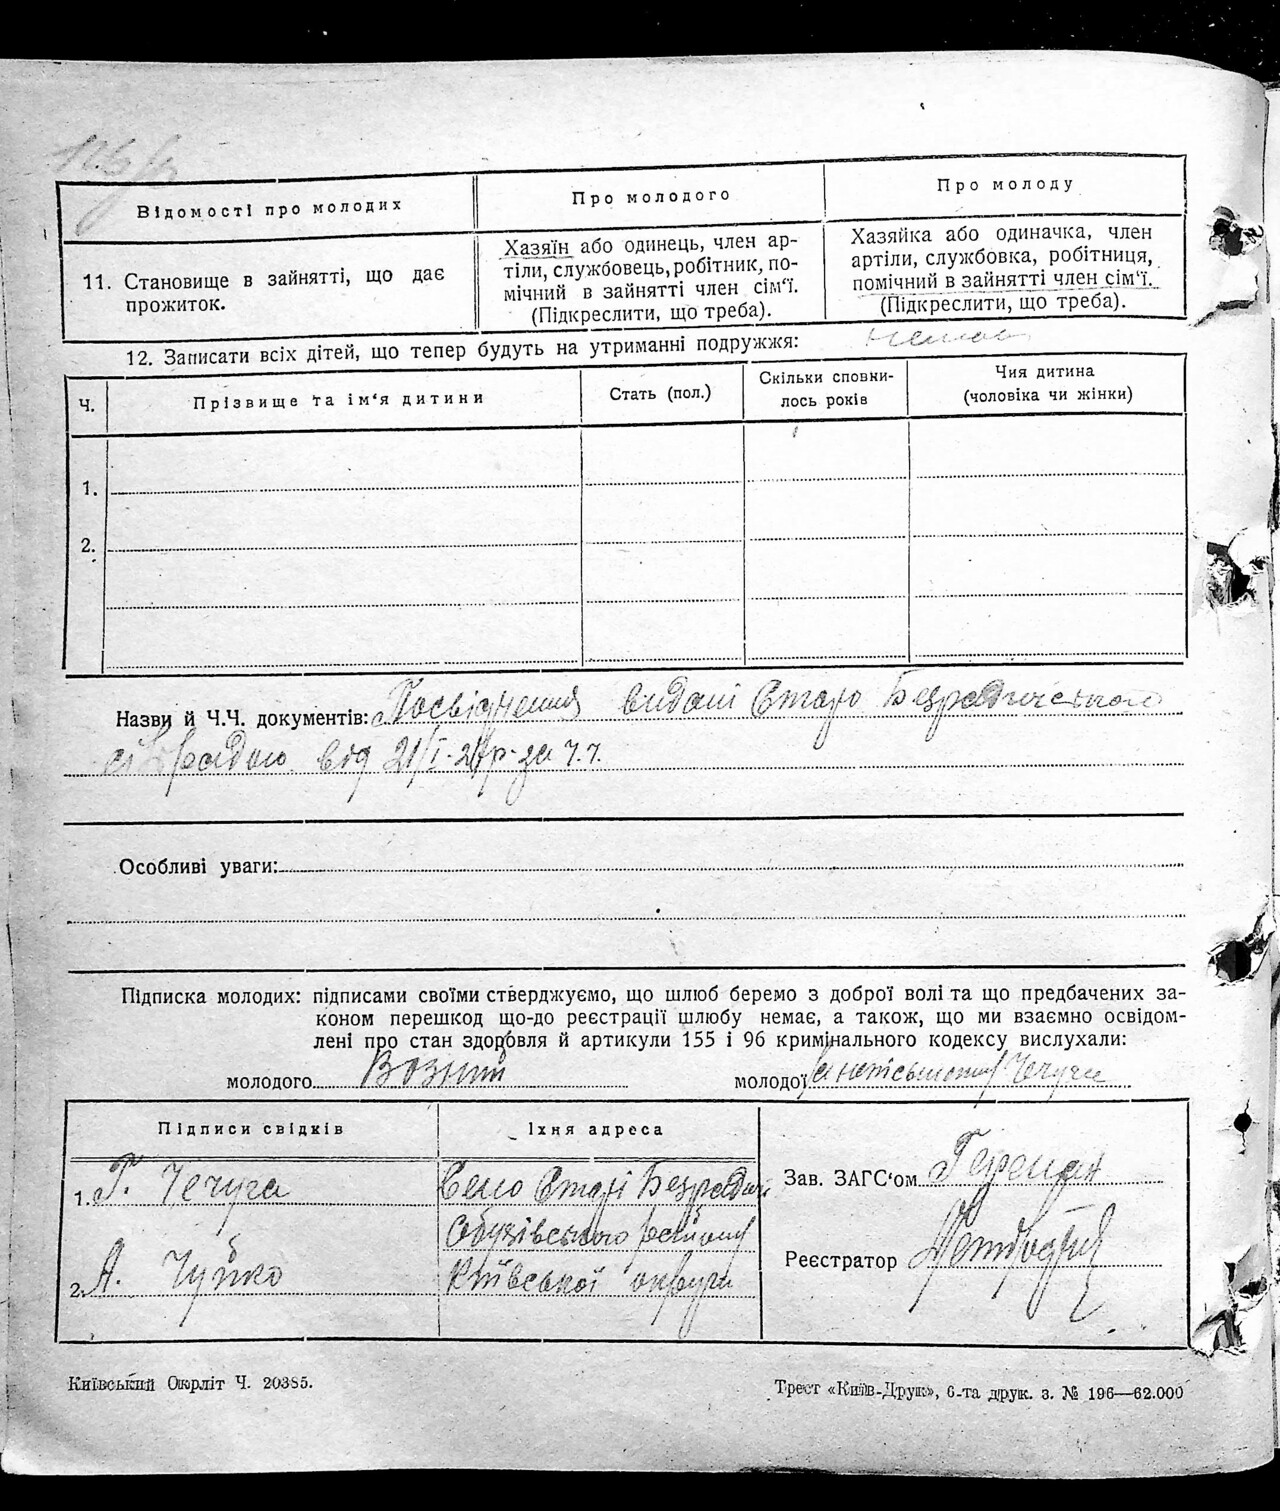 Відомості про молодих
Про молодого
Про молоду
11. Становище в зайнятті, що дає
прожиток.
Хазяїн або одинець, член ар-
тіли, службовець, робітник, по-
мічний в зайнятті член сім'ї.
(Підкреслити, що треба).
Хазяйка або одиначка, член
артіли, службовка, робітниця,
помічний в зайнятті член сім'ї.
(Підкреслити, що треба).
12. Записати всіх дітей, що тепер будуть на утриманні подружжя:
Ч.
Прізвище та ім'я дитини
Стать (пол.)
Скільки сповни-
лось років
Чия дитина
(чоловіка чи жінки)
1.
2.
Назви й Ч.Ч. документів: Посвідчення видані Старо Безрадичською
сільрадою від 21/I за ч.ч.
Особливі уваги:
Підписка молодих: підписами своїми стверджуємо, що шлюб беремо з доброї волі та що предбачених за-
коном перешкод що-до реєстрації шлюбу немає, а також, що ми взаємно освідом-
лені про стан здоровля й артикули 155 і 96 кримінального кодексу вислухали:
молодого Возний
молодої Чечуга
Підписи свідків
Їхня адреса
1. Г. Чечуга
Село Старі Безрадичі
Обухівського району
2. А. Чуйко
Київської округи
Зав. ЗАГС'ом
Реєстратор
Київський Окрліт Ч. 20385.
Трест «Київ-Друк», 6-та друк. з. № 196—62.000